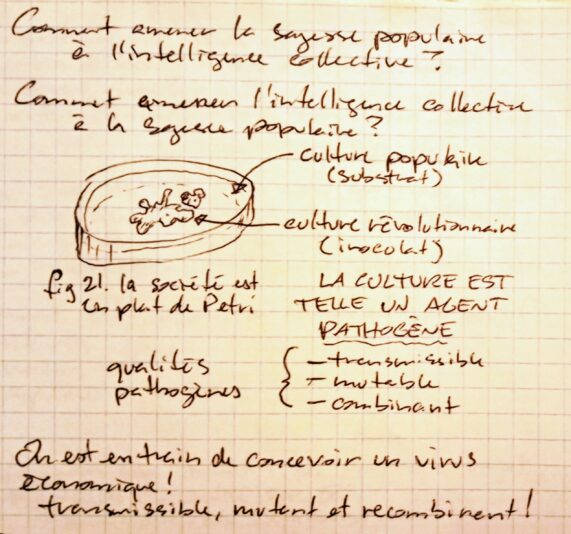 Comment amener la sagesse populaire
à l'intelligence collective ?
Comment amener l'intelligence collective
à la sagesse populaire ?
culture populaire
(substrat)
culture révolutionnaire
(inoculat)
fig 21. la société est
un plat de Petri
LA CULTURE EST
TELLE UN AGENT
PATHOGÈNE
qualités
pathogènes
- transmissible
- mutable
- combinant
On est en train de concevoir un virus
économique !
transmissible, mutant et recombinent !